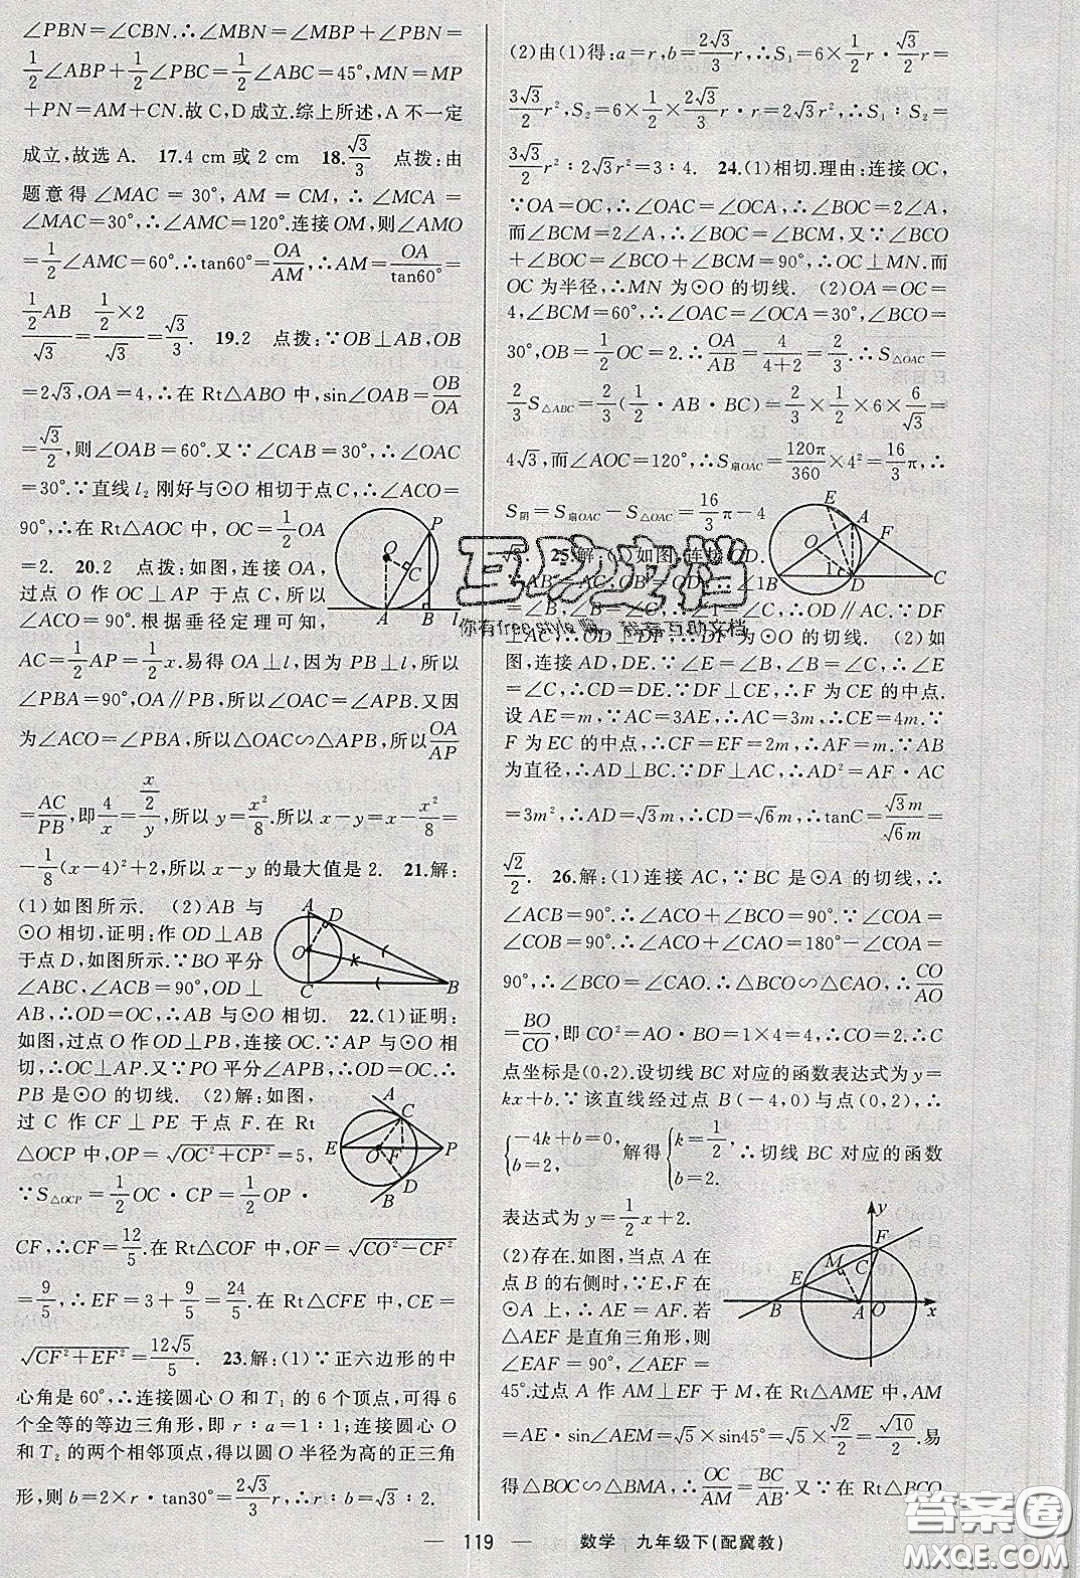 ∠PBN=∠CBN.∴∠MBN=∠MBP+∠PBN=
1/2∠ABP+1/2∠PBC=1/2∠ABC=45°,MN=MP
+PN=AM+CN.故C,D成立.综上所述,A不一定
成立,故选A. 17.4 cm或2 cm 18.√3/3 点拨:由
题意得∠MAC=30°,AM=CM,∴∠MCA=
∠MAC=30°,∴∠AMC=120°.连接OM,则∠AMO
=1/2∠AMC=60°.∴tan60°=OA/AM,∴AM=OA/tan60°=
(1/2AB)/√3=(1/2×2)/√3=√3/3. 19.2 点拨:∵OB⊥AB,OB
=2√3,OA=4,∴在Rt△ABO中,sin∠OAB=OB/OA
=√3/2,则∠OAB=60°.又∵∠CAB=30°,∴∠OAC=
30°.∵直线l₂刚好与⊙O相切于点C,∴∠ACO=
90°,∴在Rt△AOC中,OC=1/2OA
=2. 20.2 点拨:如图,连接OA,
过点O作OC⊥AP于点C,所以
∠ACO=90°.根据垂径定理可知,
AC=1/2AP=1/2x.易得OA⊥l,因为PB⊥l,所以
∠PBA=90°,OA∥PB,所以∠OAC=∠APB.又因
为∠ACO=∠PBA,所以△OAC∽△APB,所以OA/AP
=AC/PB,即4/x=(x/2)/y,所以y=x²/8.所以x-y=x-x²/8=
-1/8(x-4)²+2,所以x-y的最大值是2. 21.解:
(1)如图所示. (2)AB与
⊙O相切.证明:作OD⊥AB
于点D,如图所示.∵BO平分
∠ABC,∠ACB=90°,OD⊥
AB,∴OD=OC,∴AB与⊙O相切. 22.(1)证明:
如图,过点O作OD⊥PB,连接OC.∵AP与⊙O相
切,∴OC⊥AP.又∵PO平分∠APB,∴OC=OD,∴
PB是⊙O的切线. (2)解:如图,
过C作CF⊥PE于点F.在Rt
△OCP中,OP=√(OC²+CP²)=5,
∵S△OCP=1/2OC·CP=1/2OP·
CF,∴CF=12/5.在Rt△COF中,OF=√(CO²-CF²)
=9/5,∴EF=3+9/5=24/5.在Rt△CFE中,CE=
√(CF²+EF²)=12√5/5. 23.解:(1)∵正六边形的中
心角是60°,∴连接圆心O和T₁的6个顶点,可得6
个全等的等边三角形,即r∶a=1∶1;连接圆心O
和T₂的两个相邻顶点,得以圆O半径为高的正三角
形,则b=2×r·tan30°=2√3/3r,∴r∶b=√3∶2.
P O C A B l
A D O C B
A C E O F P D B
(2)由(1)得:a=r,b=2√3/3r,∴S₁=6×1/2r·√3/2r=
3√3/2r²,S₂=6×1/2×2√3/3r·r=2√3r²,∴S₁∶S₂=
3√3/2r²∶2√3r²=3∶4. 24.(1)相切.理由:连接OC,
∵OA=OC,∴∠OAC=∠OCA,∴∠BOC=2∠A,
而∠BCM=2∠A,∴∠BOC=∠BCM,又∵∠BCO
+∠BOC=∠BCO+∠BCM=90°,∴OC⊥MN.而
OC为半径,∴MN为⊙O的切线. (2)OA=OC=
4,∠BCM=60°,∴∠OAC=∠OCA=30°,∠BCO=
30°,OB=1/2OC=2.∴OA/AB=4/(4+2)=2/3,∴S△OAC=
2/3S△ABC=2/3(1/2·AB·BC)=2/3×1/2×6×6/√3=
4√3.而∠AOC=120°,∴S扇OAC=120π/360×4²=16/3π,∴
S阴=S扇OAC-S△OAC=16/3π-4
√3. 25.解:(1)如图,连接OD.
∵AB=AC,OB=OD,∴∠1B
=∠B,∠B=∠C,∴OD∥AC.又∵DF
⊥AC,∴OD⊥DF,∴DF为⊙O的切线. (2)如
图,连接AD,DE.∵∠B=∠E,∠B=∠C,∴∠E
=∠C,∴CD=DE.∵DF⊥CE,∴F为CE的中点.
设AE=m,∵AC=3AE,∴AC=3m,∴CE=4m.∵
F为EC的中点,∴CF=EF=2m,∴AF=m.∵AB
为直径,∴AD⊥BC.∵DF⊥AC,∴AD²=AF·AC
=3m²,∴AD=√3m,∴CD=√6m,∴tanC=√3m/√6m=
√2/2. 26.解:(1)连接AC,∵BC是⊙A的切线,∴
∠ACB=90°.∴∠ACO+∠BCO=90°.∵∠COA=
∠COB=90°,∴∠ACO+∠CAO=180°-∠COA=
90°,∴∠BCO=∠CAO.∴△BCO∽△CAO.∴CO/AO
=BO/CO,即CO²=AO·BO=1×4=4,∴CO=2.∴C
点坐标是(0,2).设切线BC对应的函数表达式为y=
kx+b.∵该直线经过点B(-4,0)与点(0,2),∴
{-4k+b=0, b=2, 解得{k=1/2, b=2. ∴切线BC对应的函数
表达式为y=1/2x+2.
(2)存在.如图,当点A在
点B的右侧时,∵E,F在
⊙A上,∴AE=AF.若
△AEF是直角三角形,则
∠EAF=90°,∠AEF=
45°.过点A作AM⊥EF于M,在Rt△AME中,AM
=AE·sin∠AEM=√5×sin45°=√5×√2/2=√10/2.易
得△BOC∽△BMA,∴OC/AM=BC/AB.又在Rt△BCO
E A F O 1 D C
y F M C E B A O x
互动文档
你有freestyle嘿 答案互动文档
答案圈
MXQE.COM
— 119 — 数学 九年级下(配冀教)